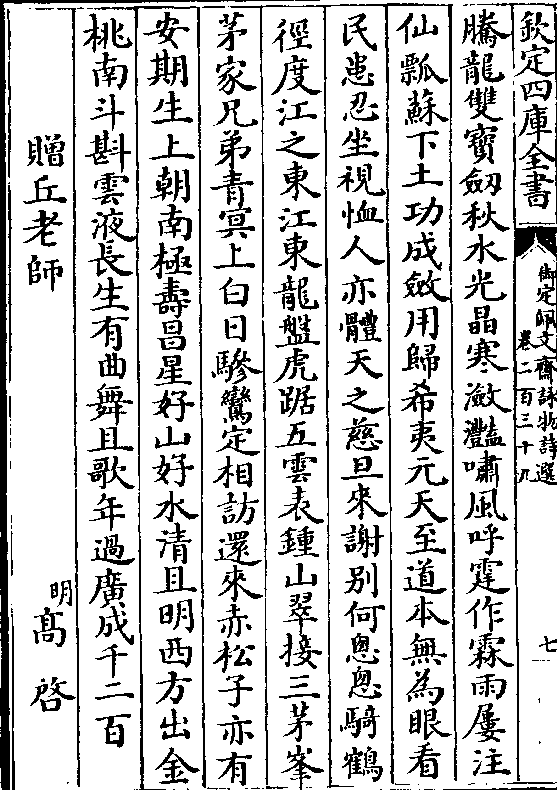 欽定四庫全書
御定佩文齋詠物詩選
卷二百三十九
七
騰龍雙寶劒秋水光晶寒瀲灩嘯風呼霆作霖雨屢注
仙瓢蘇下土功成斂用歸希夷元天至道本無為眼看
民恙忍坐視恤人亦體天之慈旦來謝别何悤悤騎鶴
徑度江之東江東龍盤虎踞五雲表鍾山翠接三茅峯
茅家兄弟青冥上白日驂鸞定相訪還來赤松子亦有
安期生上朝南極壽昌星好山好水清且明西方出金
桃南斗斟雲液長生有曲舞且歌年過廣成千二百
贈丘老師
明髙啓